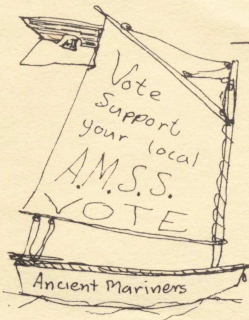 Vote
Support
your local
A.M.S.S.
VOTE
Ancient Mariners